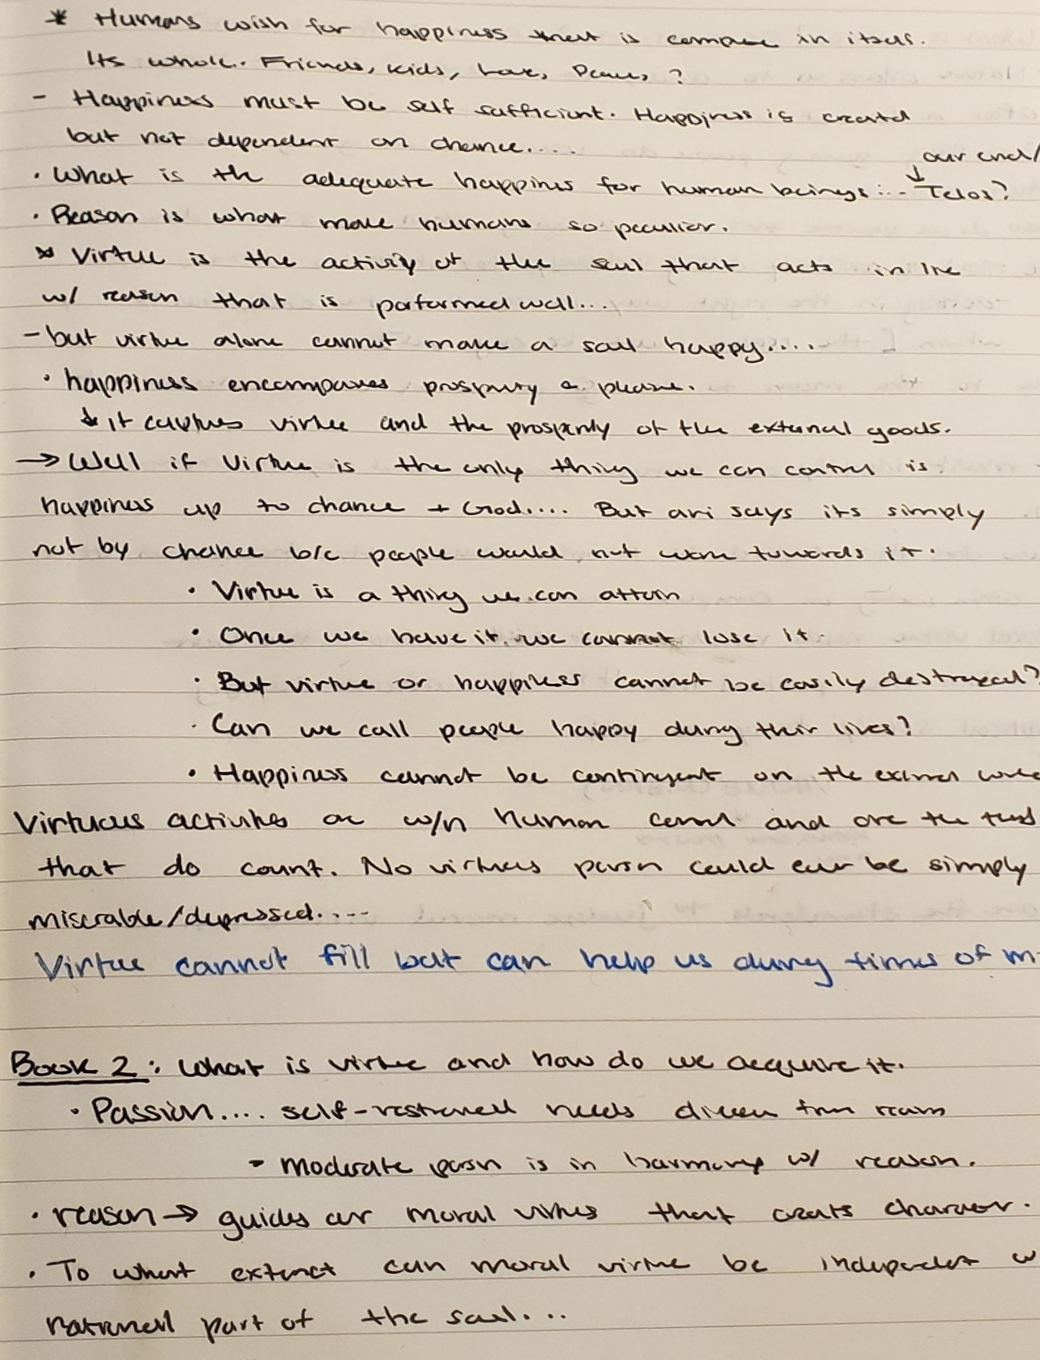 * Humans wish for happiness that is in itself.
Its whole. Friends, kids, Love, Peace, ?
- Happiness must be self sufficient. Happiness is created
but not dependent on chance....
our end/
· What is the adequate happines for human beings:-- Telos?
· Reason is what make humans so peculier.
* Virtue is the activity of the soul that acts in line
w/ reason that is performed well...
- but virtue alone cannot make a soul happy....
· happiness encompasses prosperty & pleasure.
↓ it captures virtue and the prosperity of the external goods.
→ Well if Virtue is the only thing we can control is
happiness up to chance + God.... But ari says its simply
not by chance b/c people would not work towards it.
· Virtue is a thing we can attain
· Once we have it, we cannot lose it.
· But virtue or happiness cannot be easily destroyed?
· Can we call people happy during their lives?
· Happiness cannot be contingent on the
Virtuous activities are w/n human control and are the
that do count. No virtues person could ever be simply
miserable/depressed....
Virtue cannot fill but can help us during times of m
Book 2: What is virtue and how do we acquire it.
· Passion.... self-restraned needs from reason
- Moderate person is in harmony w/ reason.
· reason → guides our moral virtues that creats character.
· To what extent can moral virtue be independet w
rational part of the soul...